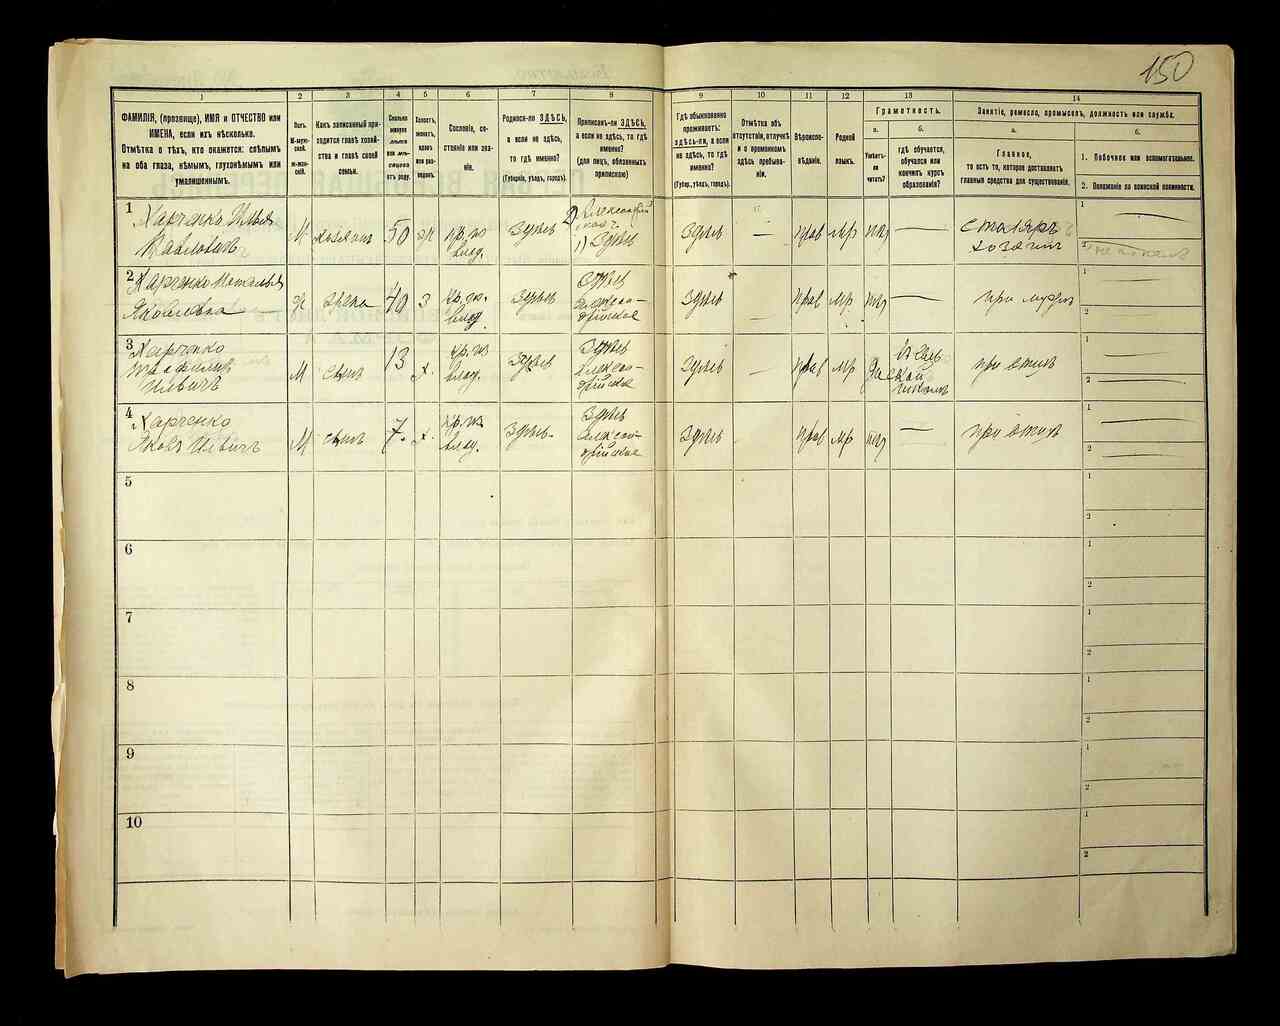 150
1
2
3
4
5
6
7
8
9
10
11
12
13
14
ФАМИЛІЯ, (прозвище), ИМЯ и ОТЧЕСТВО или
ИМЕНА, если ихъ нѣсколько.
Отмѣтка о тѣхъ, кто окажется: слѣпымъ
на оба глаза, нѣмымъ, глухонѣмымъ или
умалишеннымъ.
Полъ.
М-муж-
ской.
ж-жен-
скій.
Какъ записанный при-
ходится главѣ хозяй-
ства и главѣ своей
семьи.
Сколько
минуло
лѣтъ
или мѣ-
сяцевъ
отъ роду.
Холостъ,
женатъ,
вдовъ
или раз-
веденъ.
Сословіе, со-
стояніе или зва-
ніе.
Родился-ли ЗДѢСЬ,
а если не здѣсь,
то гдѣ именно?
(Губернія, уѣздъ, городъ).
Приписанъ-ли ЗДѢСЬ,
а если не здѣсь, то гдѣ
именно?
(для лицъ, обязанныхъ
припискою)
Гдѣ обыкновенно
проживаетъ:
здѣсь-ли, а если
не здѣсь, то гдѣ
именно?
(Губер., уѣздъ, городъ).
Отмѣтка объ
отсутствіи, отлучкѣ
и о временномъ
здѣсь пребыва-
ніи.
Вѣроиспо-
вѣданіе.
Родной
языкъ.
Грамотность.
а.
б.
Умѣетъ-
ли
читать?
гдѣ обучается,
обучался или
кончилъ курсъ
образованія?
Занятіе, ремесло, промыселъ, должность или служба.
а.
б.
Главное,
то есть то, которое доставляетъ
главныя средства для существованія.
1. Побочное или вспомогательное.
2. Положеніе по воинской повинности.
1
Харченко Илья
Павловичъ
М
хозяинъ
50
жн
кр. из
влад.
Здѣсь
2)
1) Здѣсь
Здѣсь
—
прав
мр
нѣт
—
столяръ
хозяинъ
1
2
2
Харченко Наталья
Яковлевна
ж
жена
40
З
кр. из
влад.
Здѣсь
Здѣсь
Здѣсь
прав
мр.
нѣт
—
при мужѣ
1
2
3
Харченко
Ильичъ
М
сынъ
13
х.
кр. из
влад.
Здѣсь
Здѣсь
Здѣсь
—
прав
мр
да
при отцѣ
1
2
4
Харченко
Яковъ Ильичъ
М
сынъ
7.
х.
кр. из
влад.
Здѣсь.
Здѣсь
Здѣсь
прав
мр
нѣт
—
при отцѣ
1
2
5
1
2
6
1
2
7
1
2
8
1
2
9
1
2
10
1
2